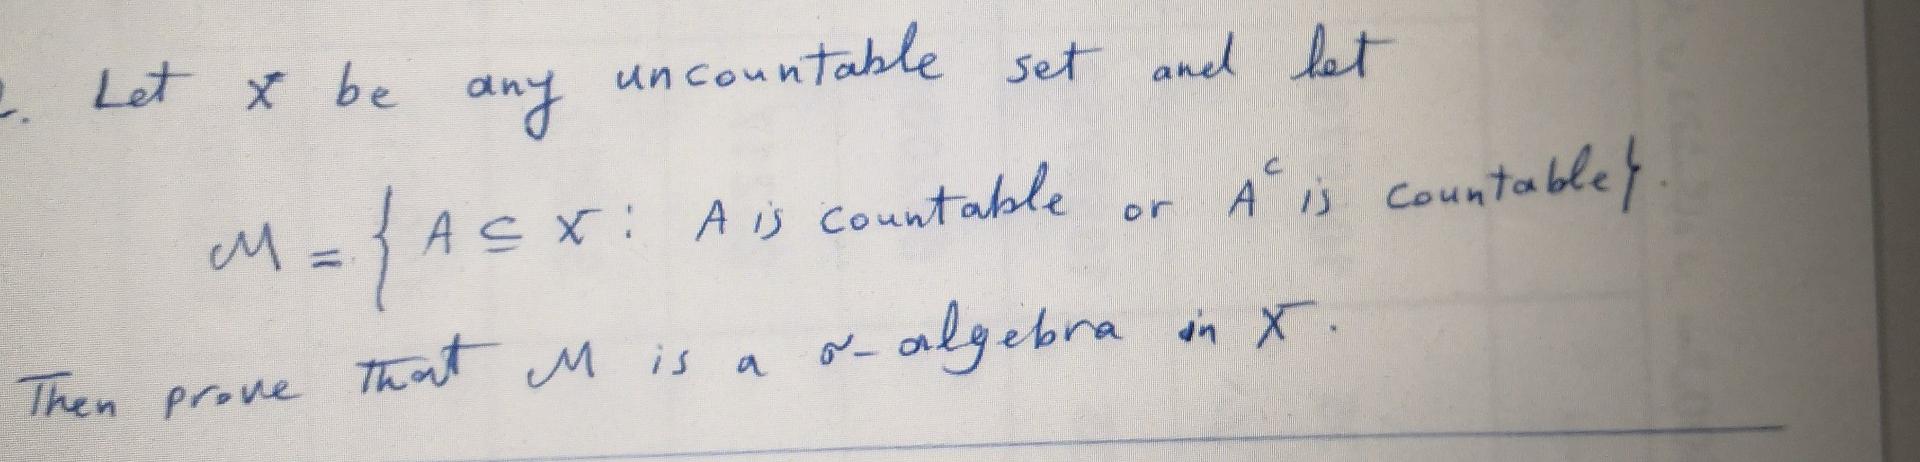 2. Let X be any uncountable set and let
M = { A ⊆ X : A is countable or Aᶜ is countable}.
Then prove that M is a σ-algebra in X.